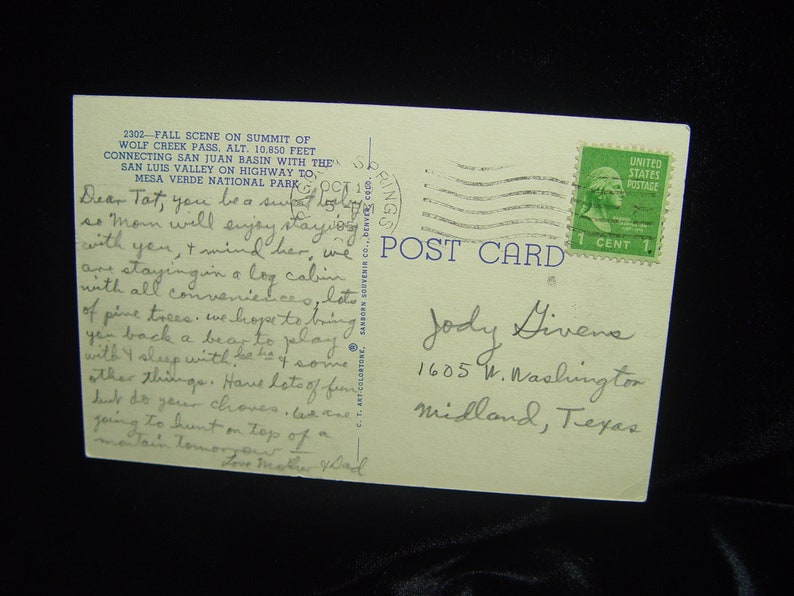 2302—FALL SCENE ON SUMMIT OF
WOLF CREEK PASS, ALT. 10,850 FEET
CONNECTING SAN JUAN BASIN WITH THE
SAN LUIS VALLEY ON HIGHWAY TO
MESA VERDE NATIONAL PARK
Dear Tat, you be a sweet baby
so Mom will enjoy staying
with you, + mind her. we
are staying in a log cabin
with all conveniences, lots
of pine trees. we hope to bring
you back a bear to play
with & sleep with. ha ha & some
other things. Have lots of fun
but do your chores. we are
going to hunt on top of a
montain tomorrow —
Love Mother & Dad
C. T. ART-COLORTONE, ® SANBORN SOUVENIR CO., DENVER, COLO.
SPRINGS
OCT 1
UNITED
STATES
POSTAGE
1 CENT 1
POST CARD
Jody Givens
1605 W. Washington
Midland, Texas